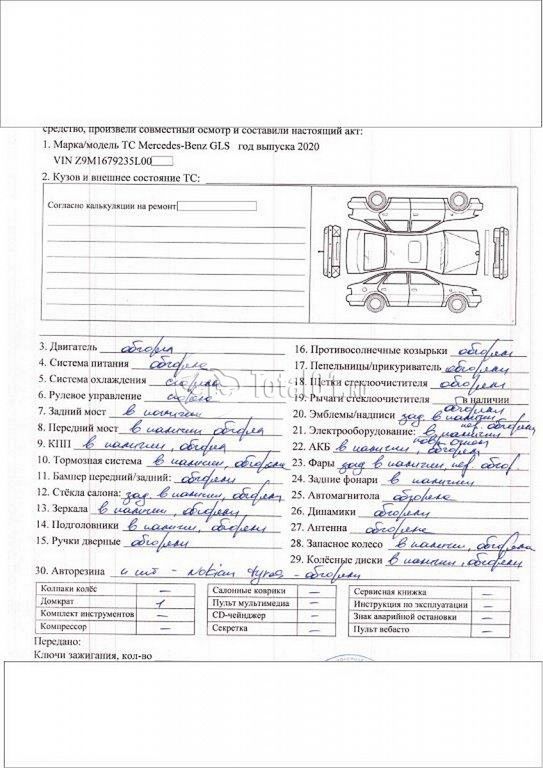 средство, произвели совместный осмотр и составили настоящий акт:
1. Марка/модель ТС Mercedes-Benz GLS год выпуска 2020
VIN Z9M1679235L00
2. Кузов и внешнее состояние ТС:
Согласно калькуляции на ремонт
3. Двигатель обгорел
4. Система питания обгорела
5. Система охлаждения сгорела
6. Рулевое управление сгорело
7. Задний мост в наличии
8. Передний мост в наличии обгорел
9. КПП в наличии, обгорела
10. Тормозная система в наличии, обгорели
11. Бампер передний/задний: обгорели
12. Стёкла салона: зад в наличии, обгорели
13. Зеркала в наличии, обгорели
14. Подголовники в наличии, обгорели
15. Ручки дверные обгорели
16. Противосолнечные козырьки обгорели
17. Пепельницы/прикуриватель обгорели
18. Щетки стеклоочистителя обгорели
19. Рычаги стеклоочистителя в наличии
обгорели
20. Эмблемы/надписи зад в наличии
пер. обгорели
21. Электрооборудование: в наличии
22. АКБ в наличии, обгорели
23. Фары зад в наличии, пер. обгор.
24. Задние фонари в наличии
25. Автомагнитола обгорела
26. Динамики обгорели
27. Антенна обгорела
28. Запасное колесо в наличии, обгорели
29. Колёсные диски в наличии, обгорели
30. Авторезина 4 шт - Nokian Tyres - обгорели
Колпаки колёс — Салонные коврики — Сервисная книжка —
Домкрат 1 Пульт мультимедиа — Инструкция по эксплуатации —
Комплект инструментов — CD-чейнджер — Знак аварийной остановки —
Компрессор — Секретка — Пульт вебасто —
Передано:
Ключи зажигания, кол-во